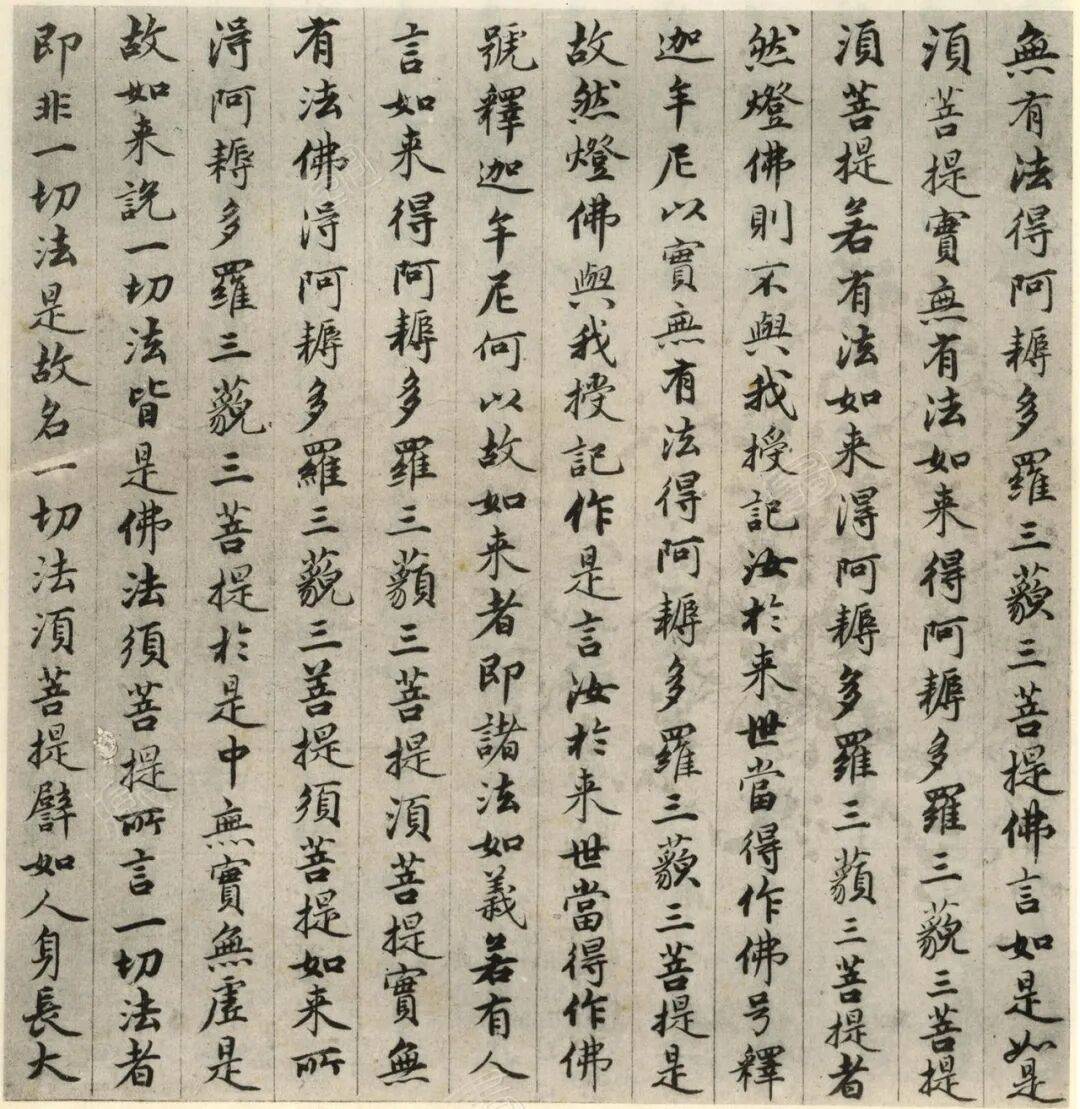 無有法得阿耨多羅三藐三菩提佛言如是如是
須菩提實無有法如来得阿耨多羅三藐三菩提
須菩提若有法如来淂阿耨多羅三藐三菩提者
然燈佛則不與我授記汝於来世當得作佛号釋
迦牟尼以實無有法得阿耨多羅三藐三菩提是
故然燈佛與我授記作是言汝於来世當得作佛
號釋迦牟尼何以故如来者即諸法如義若有人
言如来得阿耨多羅三藐三菩提須菩提實無
有法佛淂阿耨多羅三藐三菩提須菩提如来所
淂阿耨多羅三藐三菩提於是中無實無虛是
故如来說一切法皆是佛法須菩提所言一切法者
即非一切法是故名一切法須菩提譬如人身長大